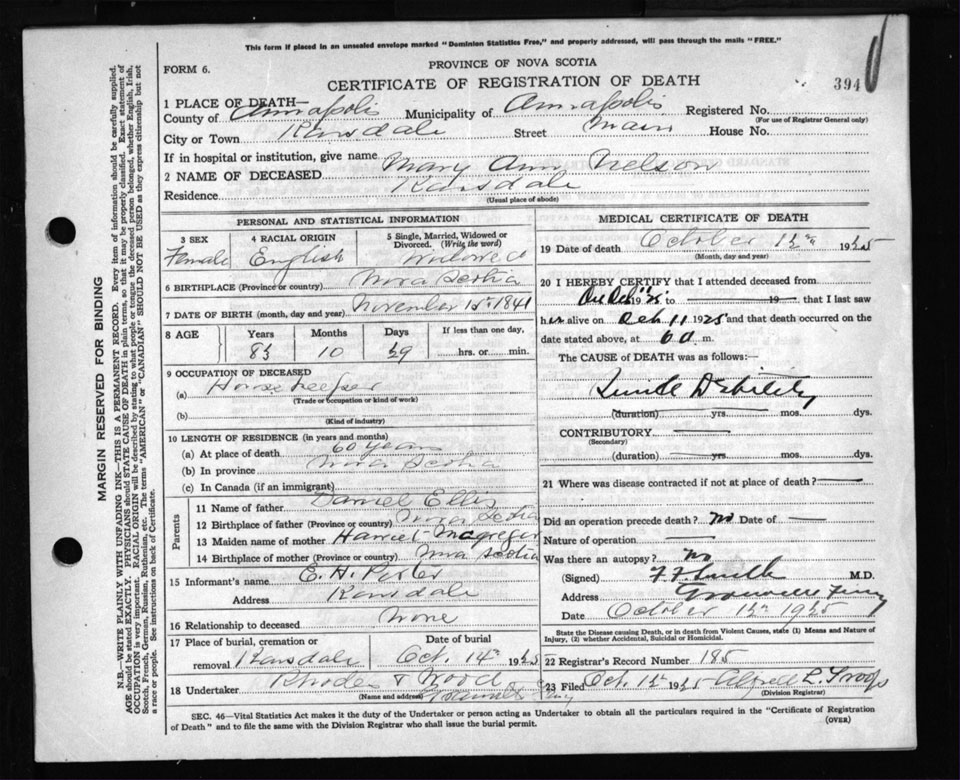 This form if placed in an unsealed envelope marked "Dominion Statistics Free," and properly addressed, will pass through the mails "FREE."
FORM 6.
PROVINCE OF NOVA SCOTIA
CERTIFICATE OF REGISTRATION OF DEATH
394
1 PLACE OF DEATH—
County of Annapolis Municipality of Annapolis Registered No.
(For use of Registrar General only)
City or Town Karsdale Street Main House No.
If in hospital or institution, give name
2 NAME OF DECEASED Mary Ann Nelson
Residence Karsdale
(Usual place of abode)
PERSONAL AND STATISTICAL INFORMATION
3 SEX Female
4 RACIAL ORIGIN English
5 Single, Married, Widowed or Divorced. (Write the word) Widowed
6 BIRTHPLACE (Province or country) Nova Scotia
7 DATE OF BIRTH (month, day and year) November 1841
8 AGE Years Months Days If less than one day,
83 10 29 hrs. or min.
9 OCCUPATION OF DECEASED
(a) Housekeeper
(Trade or occupation or kind of work)
(b)
(Kind of industry)
10 LENGTH OF RESIDENCE (in years and months)
(a) At place of death 60 years
(b) In province Nova Scotia
(c) In Canada (if an immigrant)
Parents
11 Name of father Daniel Ellis
12 Birthplace of father (Province or country) Nova Scotia
13 Maiden name of mother Harriet Magregor
14 Birthplace of mother (Province or country) Nova Scotia
15 Informant's name E. H. Porter
Address Karsdale
16 Relationship to deceased None
17 Place of burial, cremation or removal Karsdale
Date of burial Oct. 14th 1925
18 Undertaker Rhodes & Wood
(Name and address) Granville Ferry
MEDICAL CERTIFICATE OF DEATH
19 Date of death October 1925
(Month, day and year)
20 I HEREBY CERTIFY that I attended deceased from
19 to 19 that I last saw
her alive on Oct 11 1925 and that death occurred on the
date stated above, at 6 a. m.
The CAUSE OF DEATH was as follows:—
Senile Debility
(duration) yrs. mos. dys.
CONTRIBUTORY
(Secondary)
(duration) yrs. mos. dys.
21 Where was disease contracted if not at place of death?
Did an operation precede death? No Date of
Nature of operation
Was there an autopsy? No
(Signed) M.D.
Address Granville Ferry
Date October 1925
State the Disease causing Death, or in death from Violent Causes, state (1) Means and Nature of
Injury, (2) whether Accidental, Suicidal or Homicidal.
22 Registrar's Record Number 185
23 Filed Oct. 1925 Alfred L. Troop
(Division Registrar)
SEC. 46—Vital Statistics Act makes it the duty of the Undertaker or person acting as Undertaker to obtain all the particulars required in the "Certificate of Registration
of Death" and to file the same with the Division Registrar who shall issue the burial permit.
(OVER)
MARGIN RESERVED FOR BINDING
N.B.—WRITE PLAINLY WITH UNFADING INK—THIS IS A PERMANENT RECORD. Every item of information should be carefully supplied.
AGE should be stated EXACTLY. PHYSICIANS should STATE CAUSE OF DEATH in plain terms, so that it may be properly classified. Exact statement of
OCCUPATION is very important. RACIAL ORIGIN will be described by stating to what people or tongue the deceased person belonged, whether English, Irish,
Scotch, French, German, Russian, Ruthenian, etc. The terms "AMERICAN" or "CANADIAN" SHOULD NOT BE USED as they express citizenship but not
a race or people. See instructions on back of Certificate.